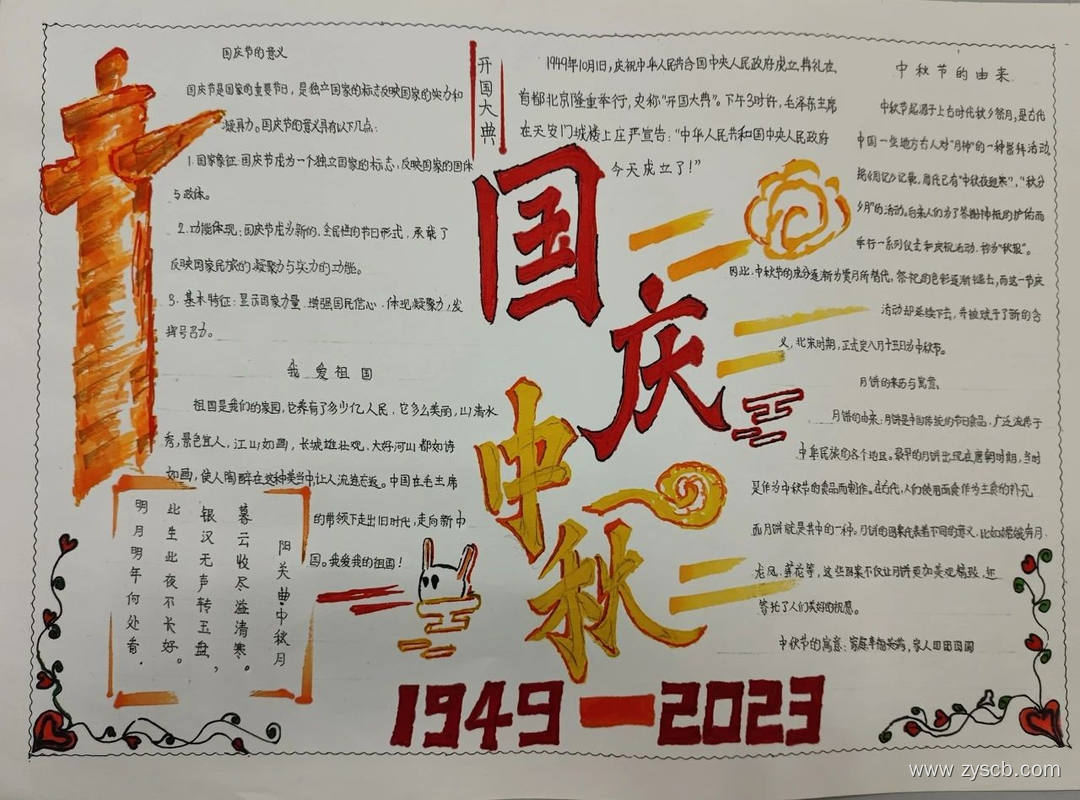 国庆节的意义
国庆节是国家的重要节日，是独立国家的标志反映国家的实力和
凝聚力。国庆节的意义具有以下几点：
1.国家象征：国庆节成为一个独立国家的标志，反映国家的国体
与政体。
2.功能体现：国庆节成为新的、全民性的节日形式，承载了
反映国家民族的凝聚力与实力的功能。
3.基本特征：显示国家力量，增强国民信心，体现凝聚力，发
挥号召力。
我爱祖国
祖国是我们的家园，它养育了多少亿人民，它多么美丽，山清水
秀，景色宜人，江山如画，长城雄壮观，大好河山都如诗
如画，使人陶醉在这种美当中让人流连忘返。中国在毛主席
的带领下走出旧时代，走向新中
国。我爱我的祖国！
阳关曲·中秋月
暮云收尽溢清寒。
银汉无声转玉盘，
此生此夜不长好。
明月明年何处看.
开国大典
1949年10月1日，庆祝中华人民共合国中央人民政府成立典礼在，
首都北京隆重举行，史称“开国大典”。下午3时许，毛泽东主席
在天安门城楼上庄严宣告：“中华人民共和国中央人民政府
今天成立了！”
国庆
中秋
1949—2023
中秋节的由来
中秋节起源于上古时代秋夕祭月，是古代
中国一些地方古人对“月神”的一种崇拜活动，
据《周记》记载，周代已有“中秋夜迎寒”，“秋分
夕月”的活动。后来人们为了答谢神祇的护佑而
举行一系列仪式和庆祝活动，称为“秋报”。
因此，中秋节的成分逐渐为赏月所替代，祭祀的色彩逐渐褪去，而这一节庆
活动却延续下去，并被赋予了新的含
义，北宋时期，正式定八月十五日为中秋节。
月饼的来历与寓意。
月饼的由来：月饼是中国传统的节日食品，广泛流传于
中华民族的各个地区。最早的月饼出现在唐朝时期，当时
是作为中秋节的食品而制作。在古代，人们使用面食作为主食的补充
而月饼就是其中的一种。月饼的图案代表着不同的意义，比如嫦娥奔月、
龙凤、莲花等，这些图案不仅让月饼更加美观精致，还
寄托了人们美好的祝愿。
中秋节的寓意：家庭幸福美满，家人团团圆圆
www.zyscb.com